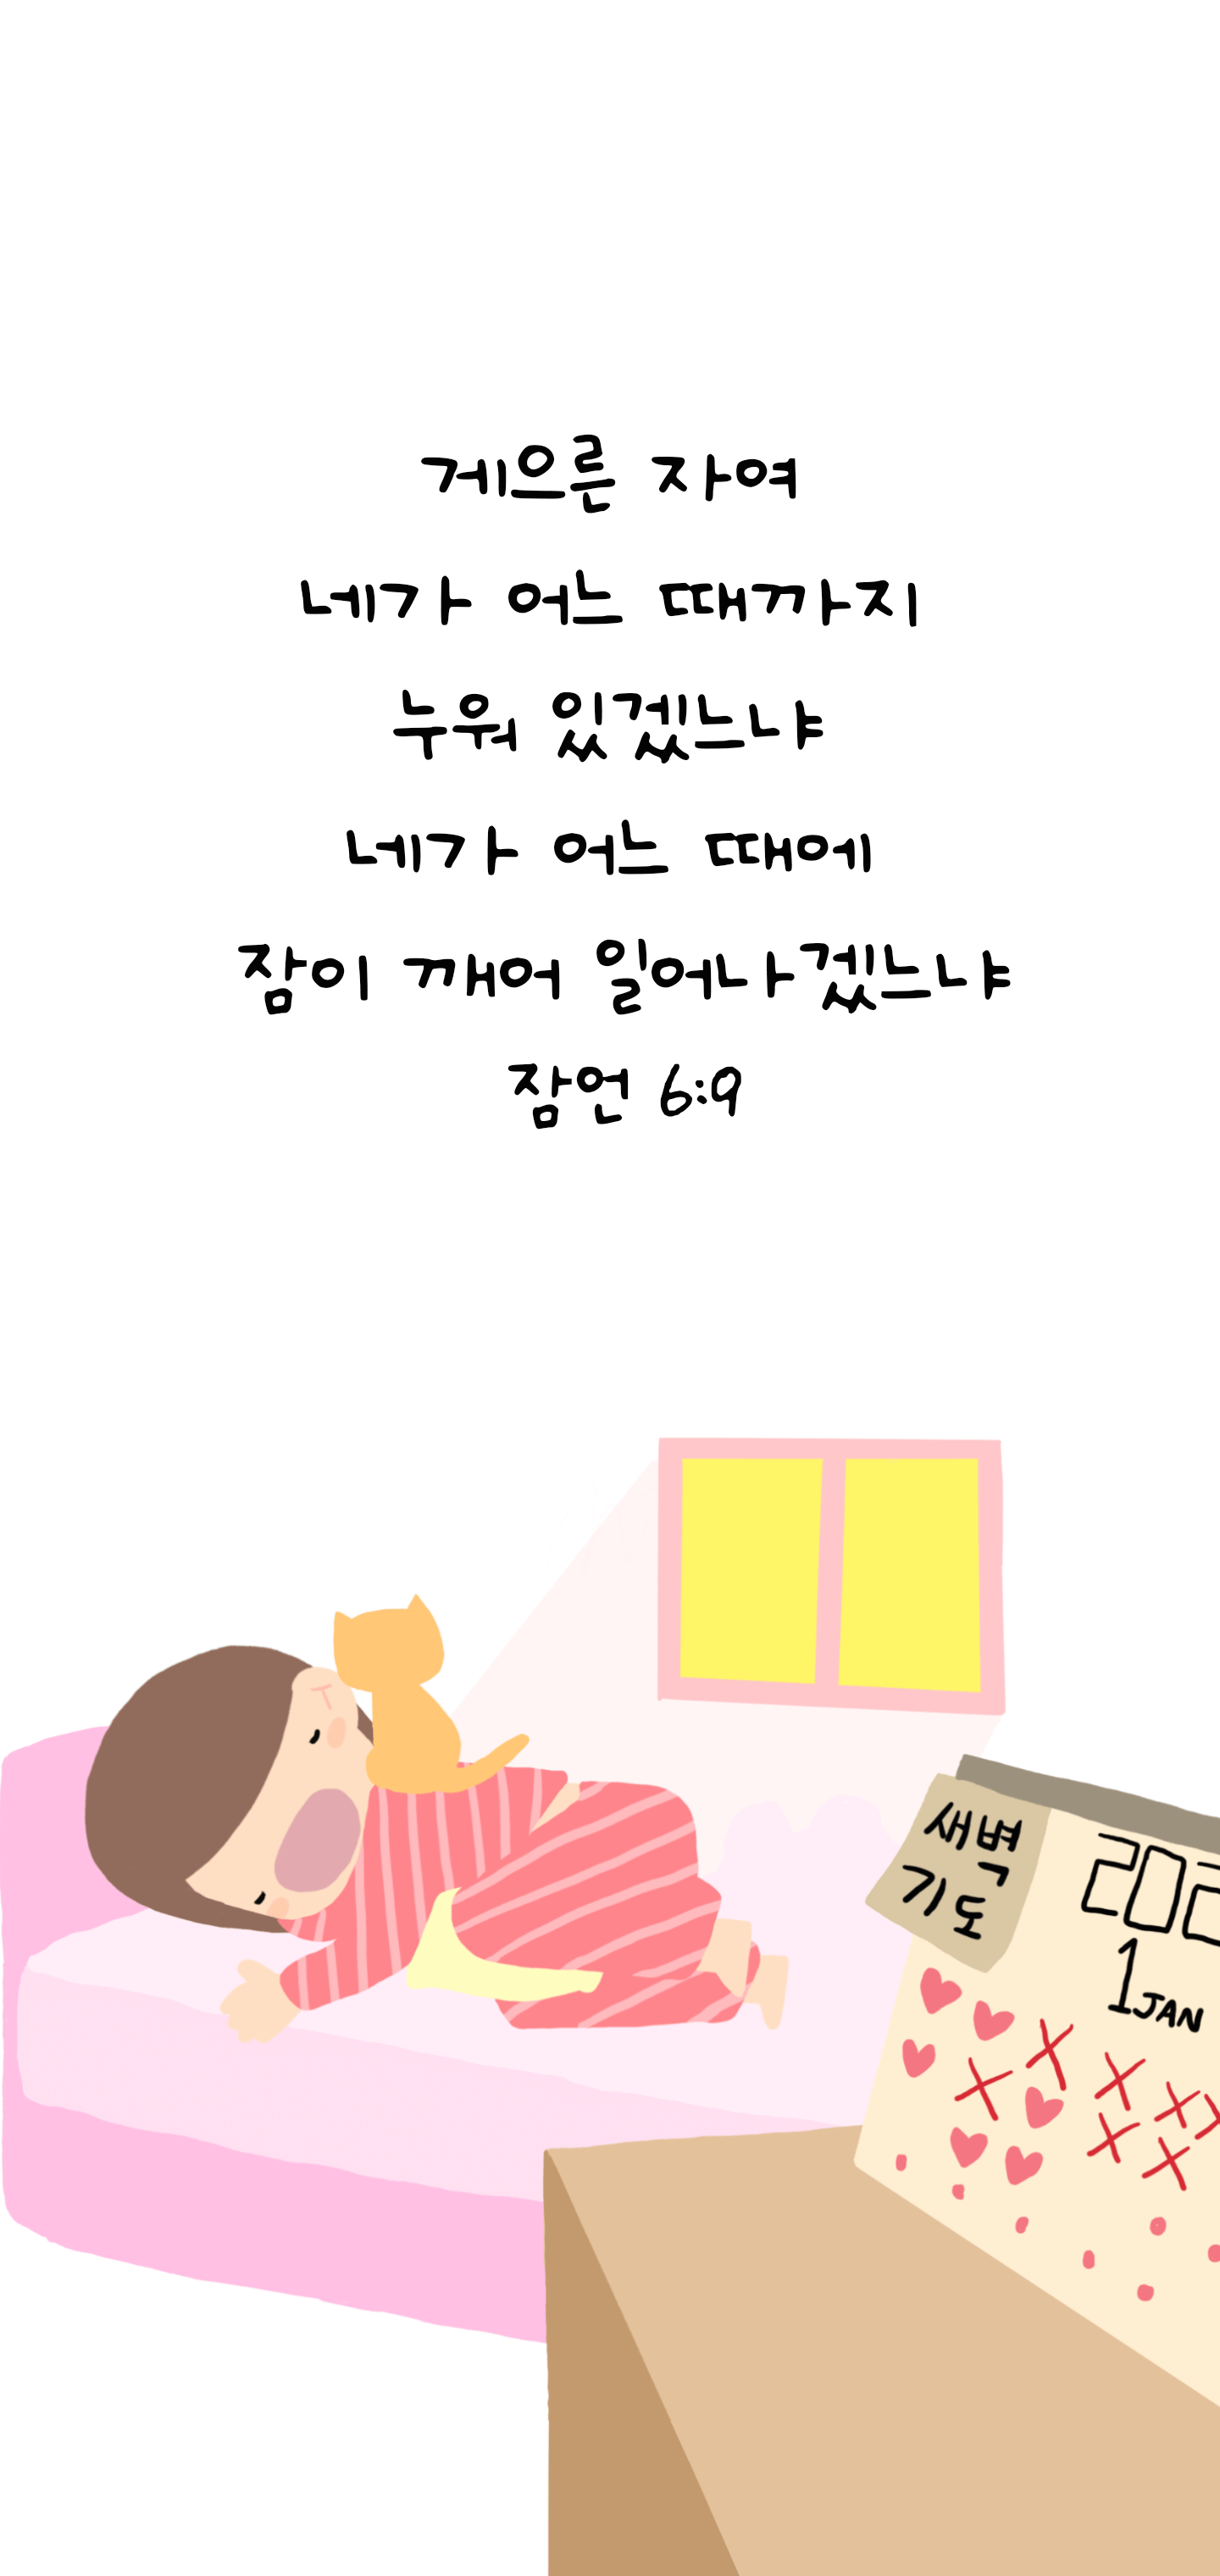 게으른 자여
네가 어느 때까지
누워 있겠느냐
네가 어느 때에
잠이 깨어 일어나겠느냐
잠언 6:9
새벽
기도
202
1 JAN